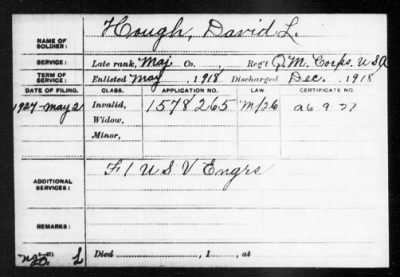 NAME OF SOLDIER: Hough, David L.
SERVICE: Late rank, Maj Co. , Reg't Q.M. Corps, USA
TERM OF SERVICE: Enlisted May , 1918 Discharged Dec. , 1918
DATE OF FILING. CLASS. APPLICATION NO. LAW. CERTIFICATE NO.
1927-May 2 Invalid, 1578265 M/26 A6 9 27
Widow,
Minor,
ADDITIONAL SERVICES: F/ U S V Engrs
REMARKS:
L Died , 1 , at